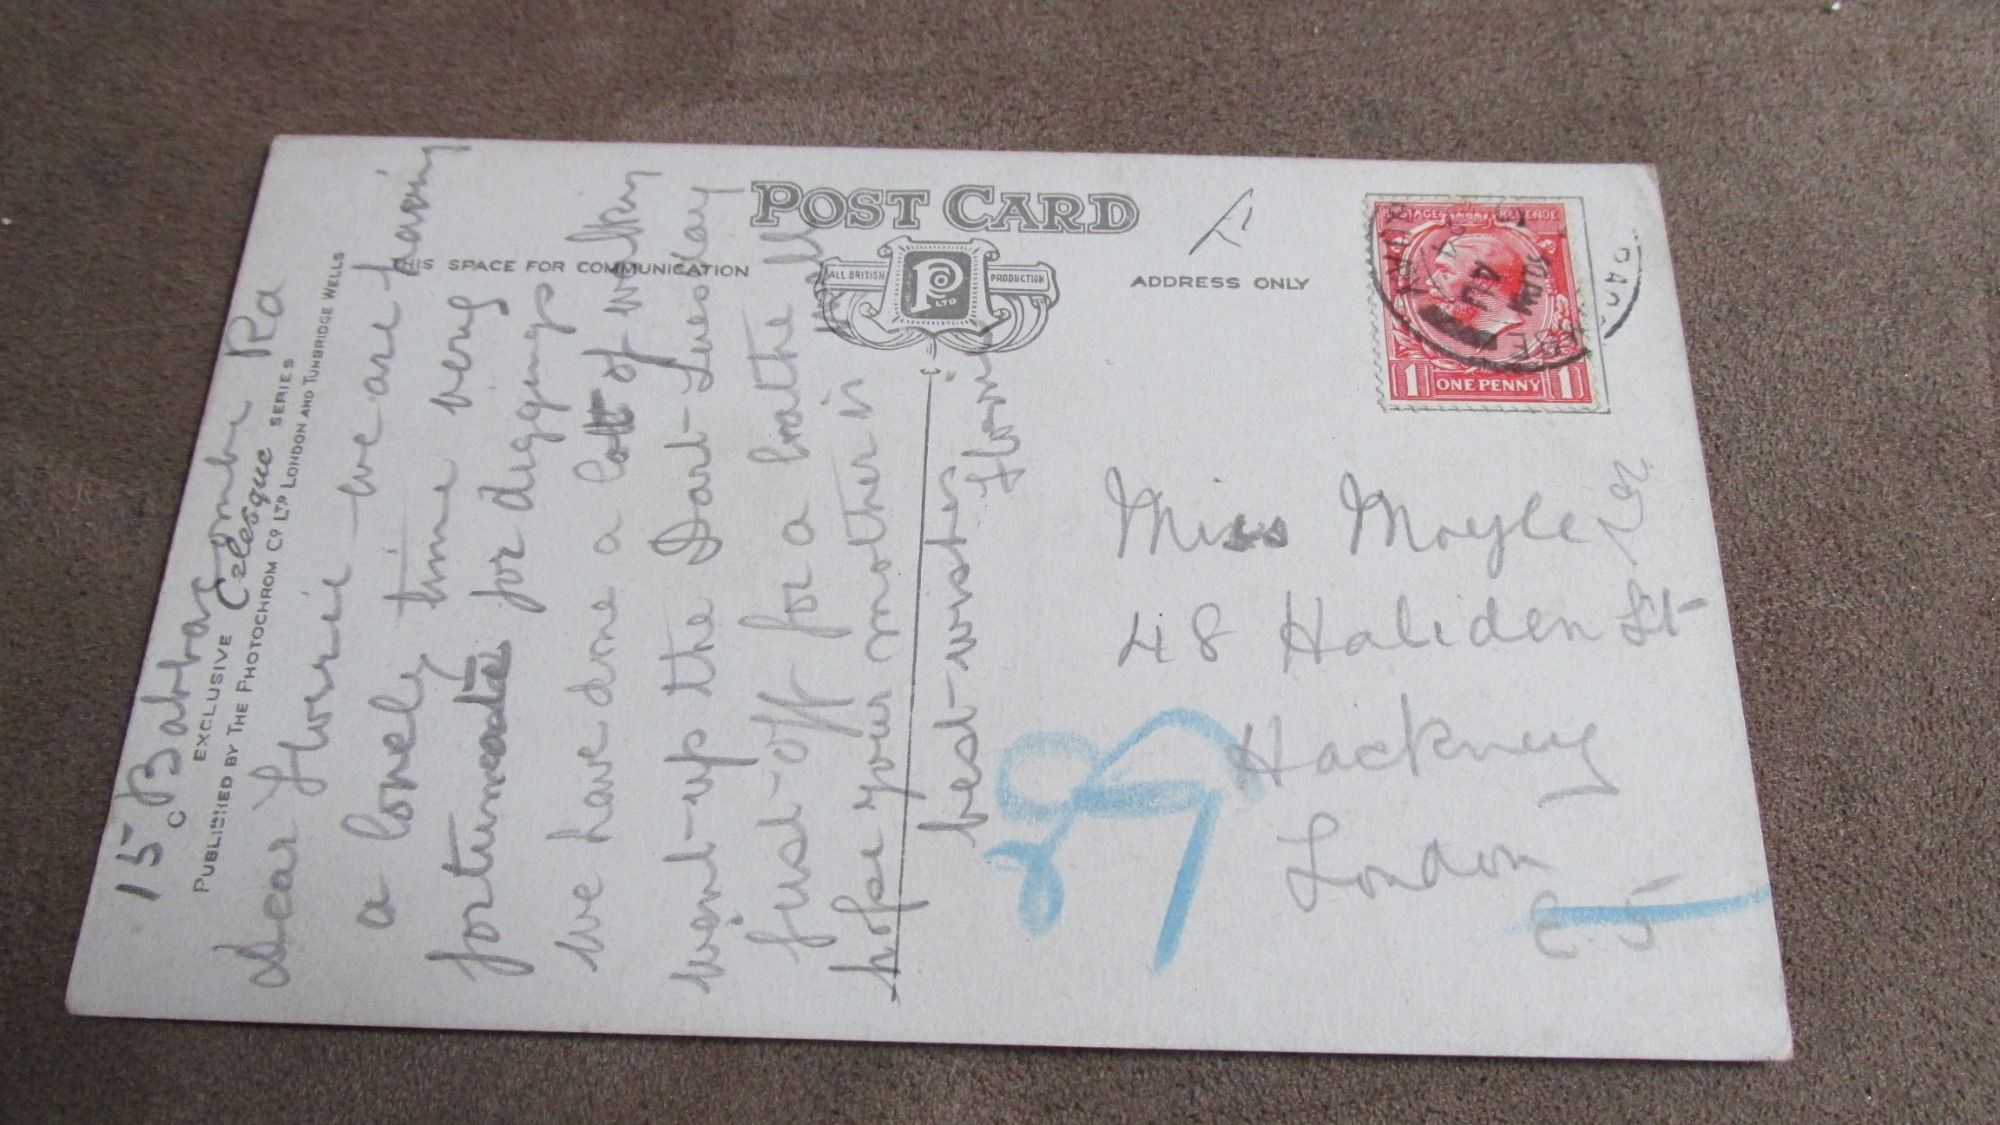 POST CARD
THIS SPACE FOR COMMUNICATION
ALL BRITISH PRODUCTION
P Co LTD
ADDRESS ONLY
POSTAGE REVENUE
1 ONE PENNY 1
15 Babbacombe Rd
EXCLUSIVE Celesque SERIES
PUBLISHED BY THE PHOTOCHROM CO LTD LONDON AND TUNBRIDGE WELLS
Dear Florrie we are having
a lonely time very
for diggings
we have done a lott of walking
went up the Dart Tuesday
just off for a bathe
hope your mother is well
best wishes
Florrie
Miss Moyle
48 Haliden St
Hackney
London